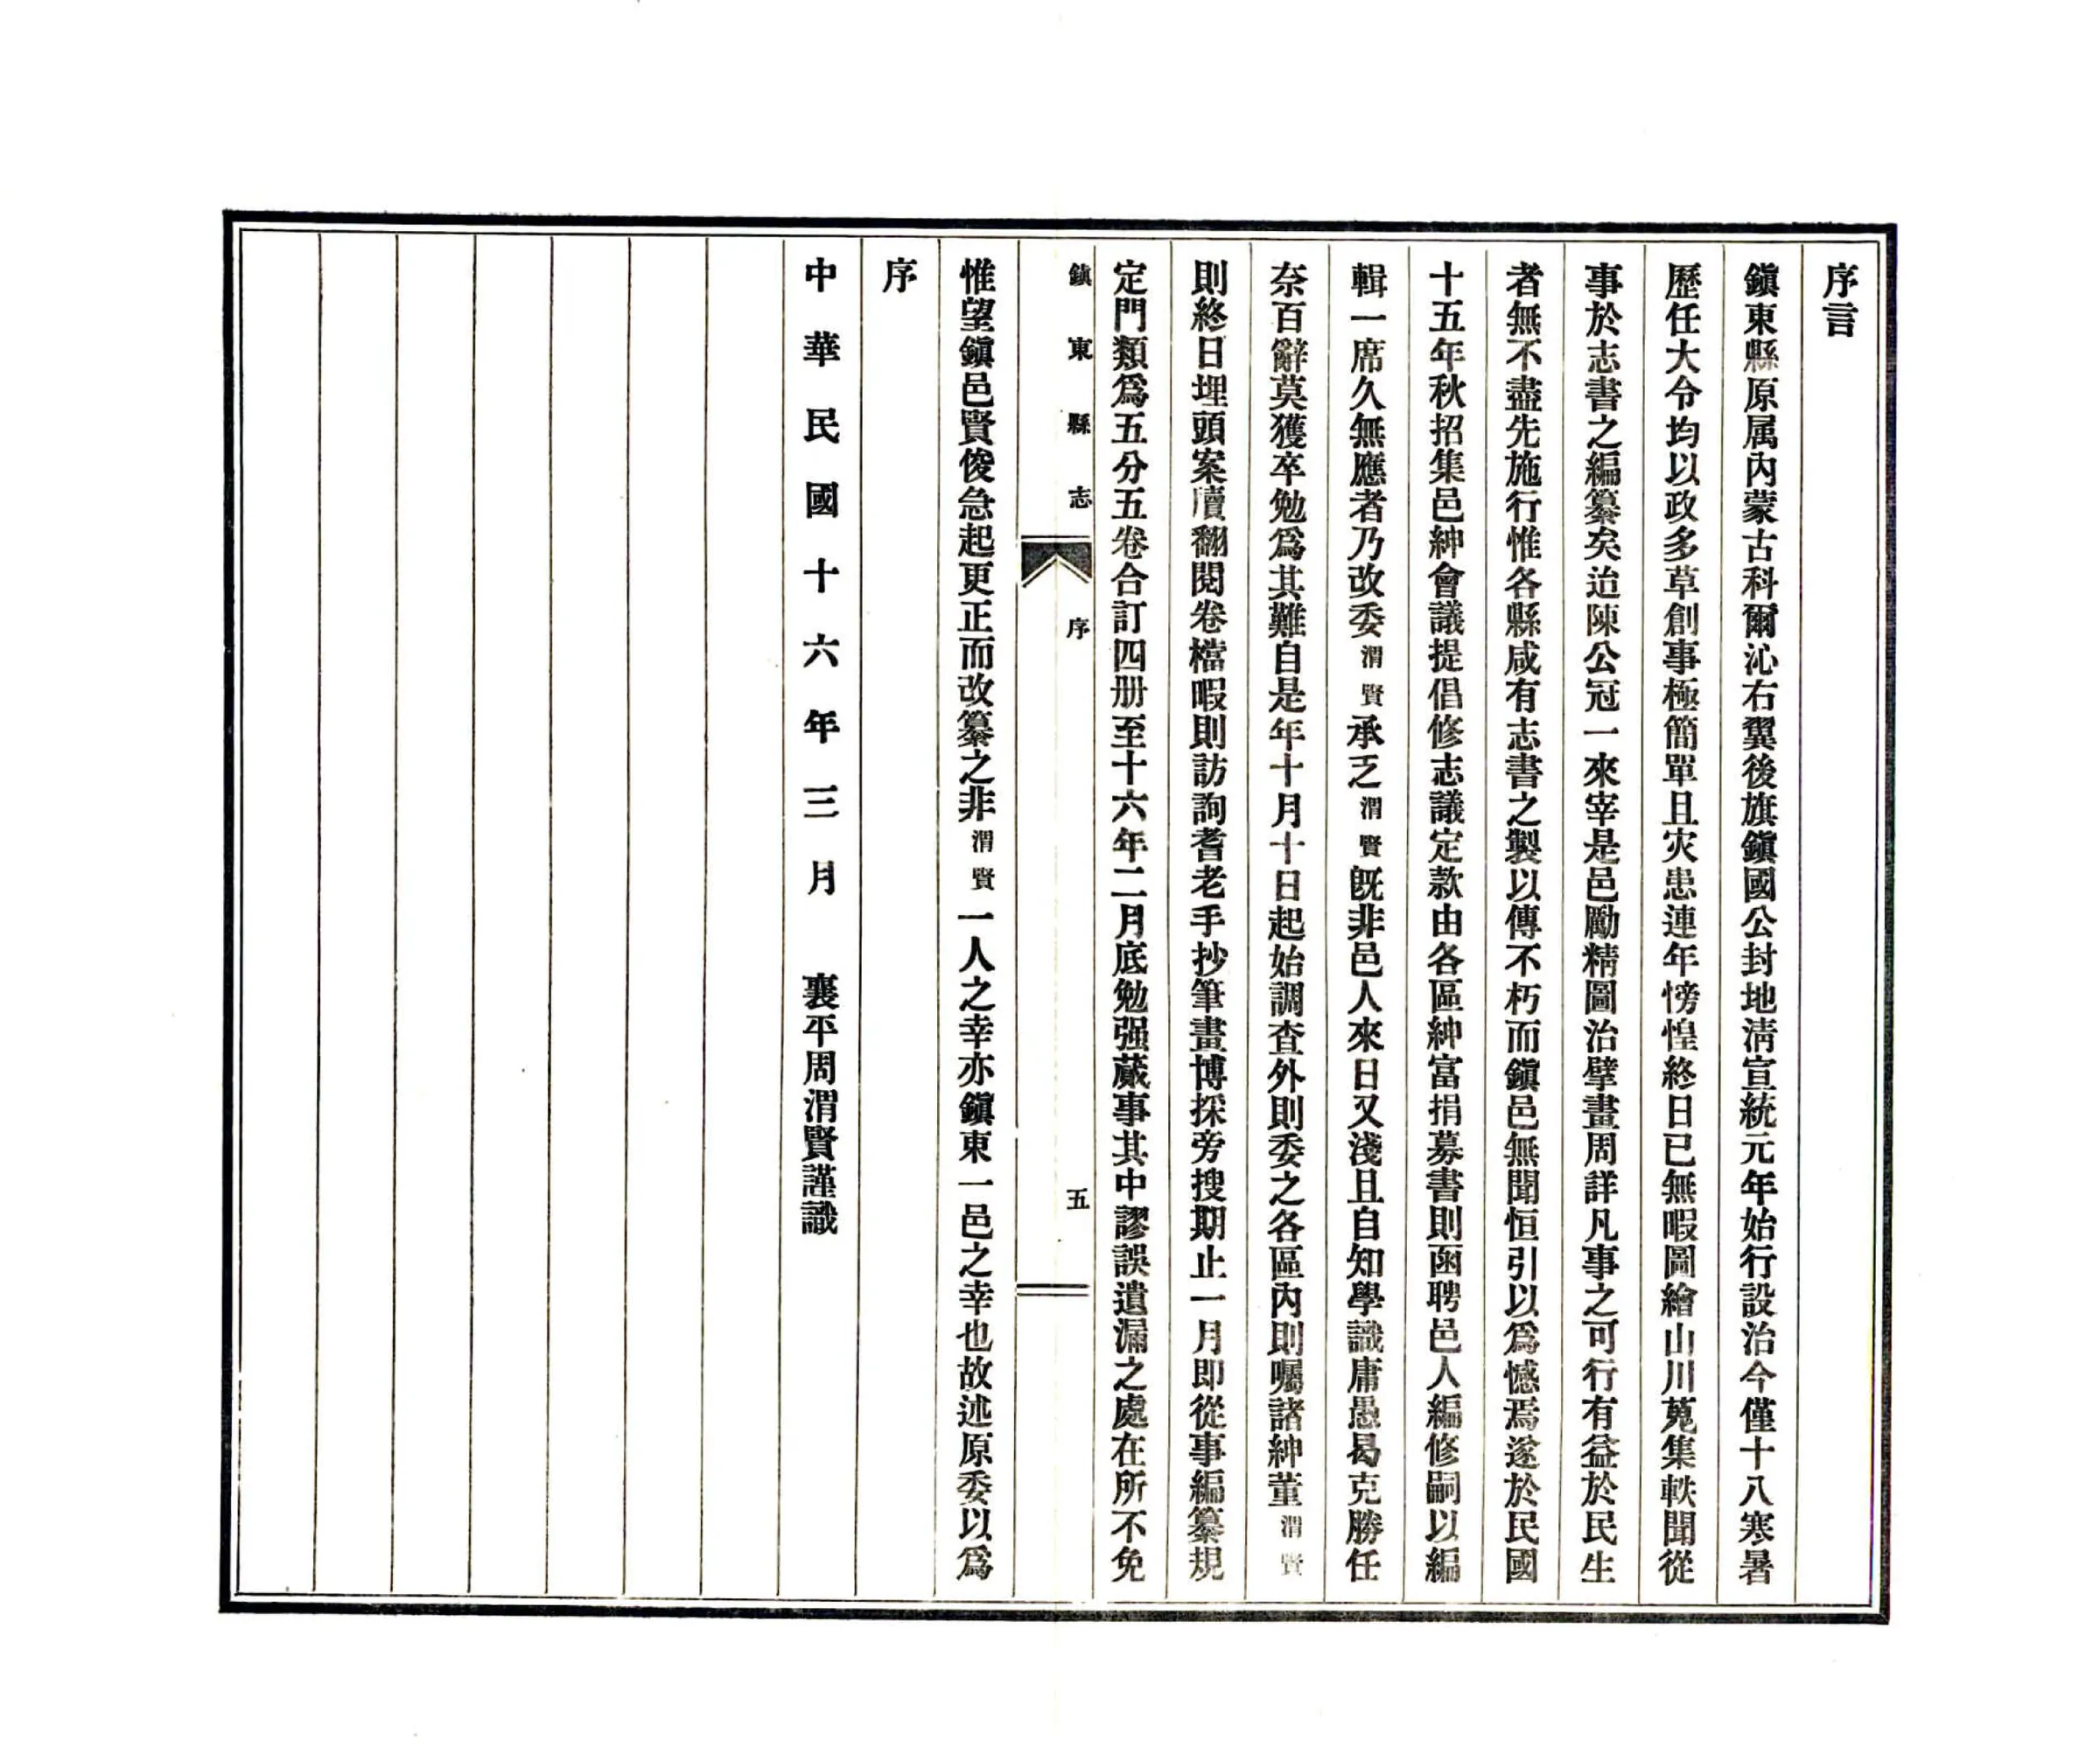 序言
鎭東縣原属內蒙古科爾沁右翼後旗鎭國公封地淸宣統元年始行設治今僅十八寒暑
歷任大令均以政多草創事極簡單且灾患連年徬惶終日已無暇圖繪山川蒐集軼聞從
事於志書之編纂矣迨陳公冠一來宰是邑勵精圖治擘畫周詳凡事之可行有益於民生
者無不盡先施行惟各縣咸有志書之製以傳不朽而鎭邑無聞恒引以爲憾焉遂於民國
十五年秋招集邑紳會議提倡修志議定款由各區紳富捐募書則函聘邑人編修嗣以編
輯一席久無應者乃改委渭賢承乏渭賢旣非邑人來日又淺且自知學識庸愚曷克勝任
奈百辭莫獲卒勉爲其難自是年十月十日起始調查外則委之各區內則囑諸紳董渭賢
則終日埋頭案牘翻閱卷檔暇則訪詢耆老手抄筆畫博採旁搜期止一月即從事編纂規
定門類爲五分五卷合訂四册至十六年二月底勉强蕆事其中謬誤遺漏之處在所不免
鎭東縣志 序 五
惟望鎭邑賢俊急起更正而改纂之非渭賢一人之幸亦鎭東一邑之幸也故述原委以爲
序
中華民國十六年三月 襄平周渭賢謹識